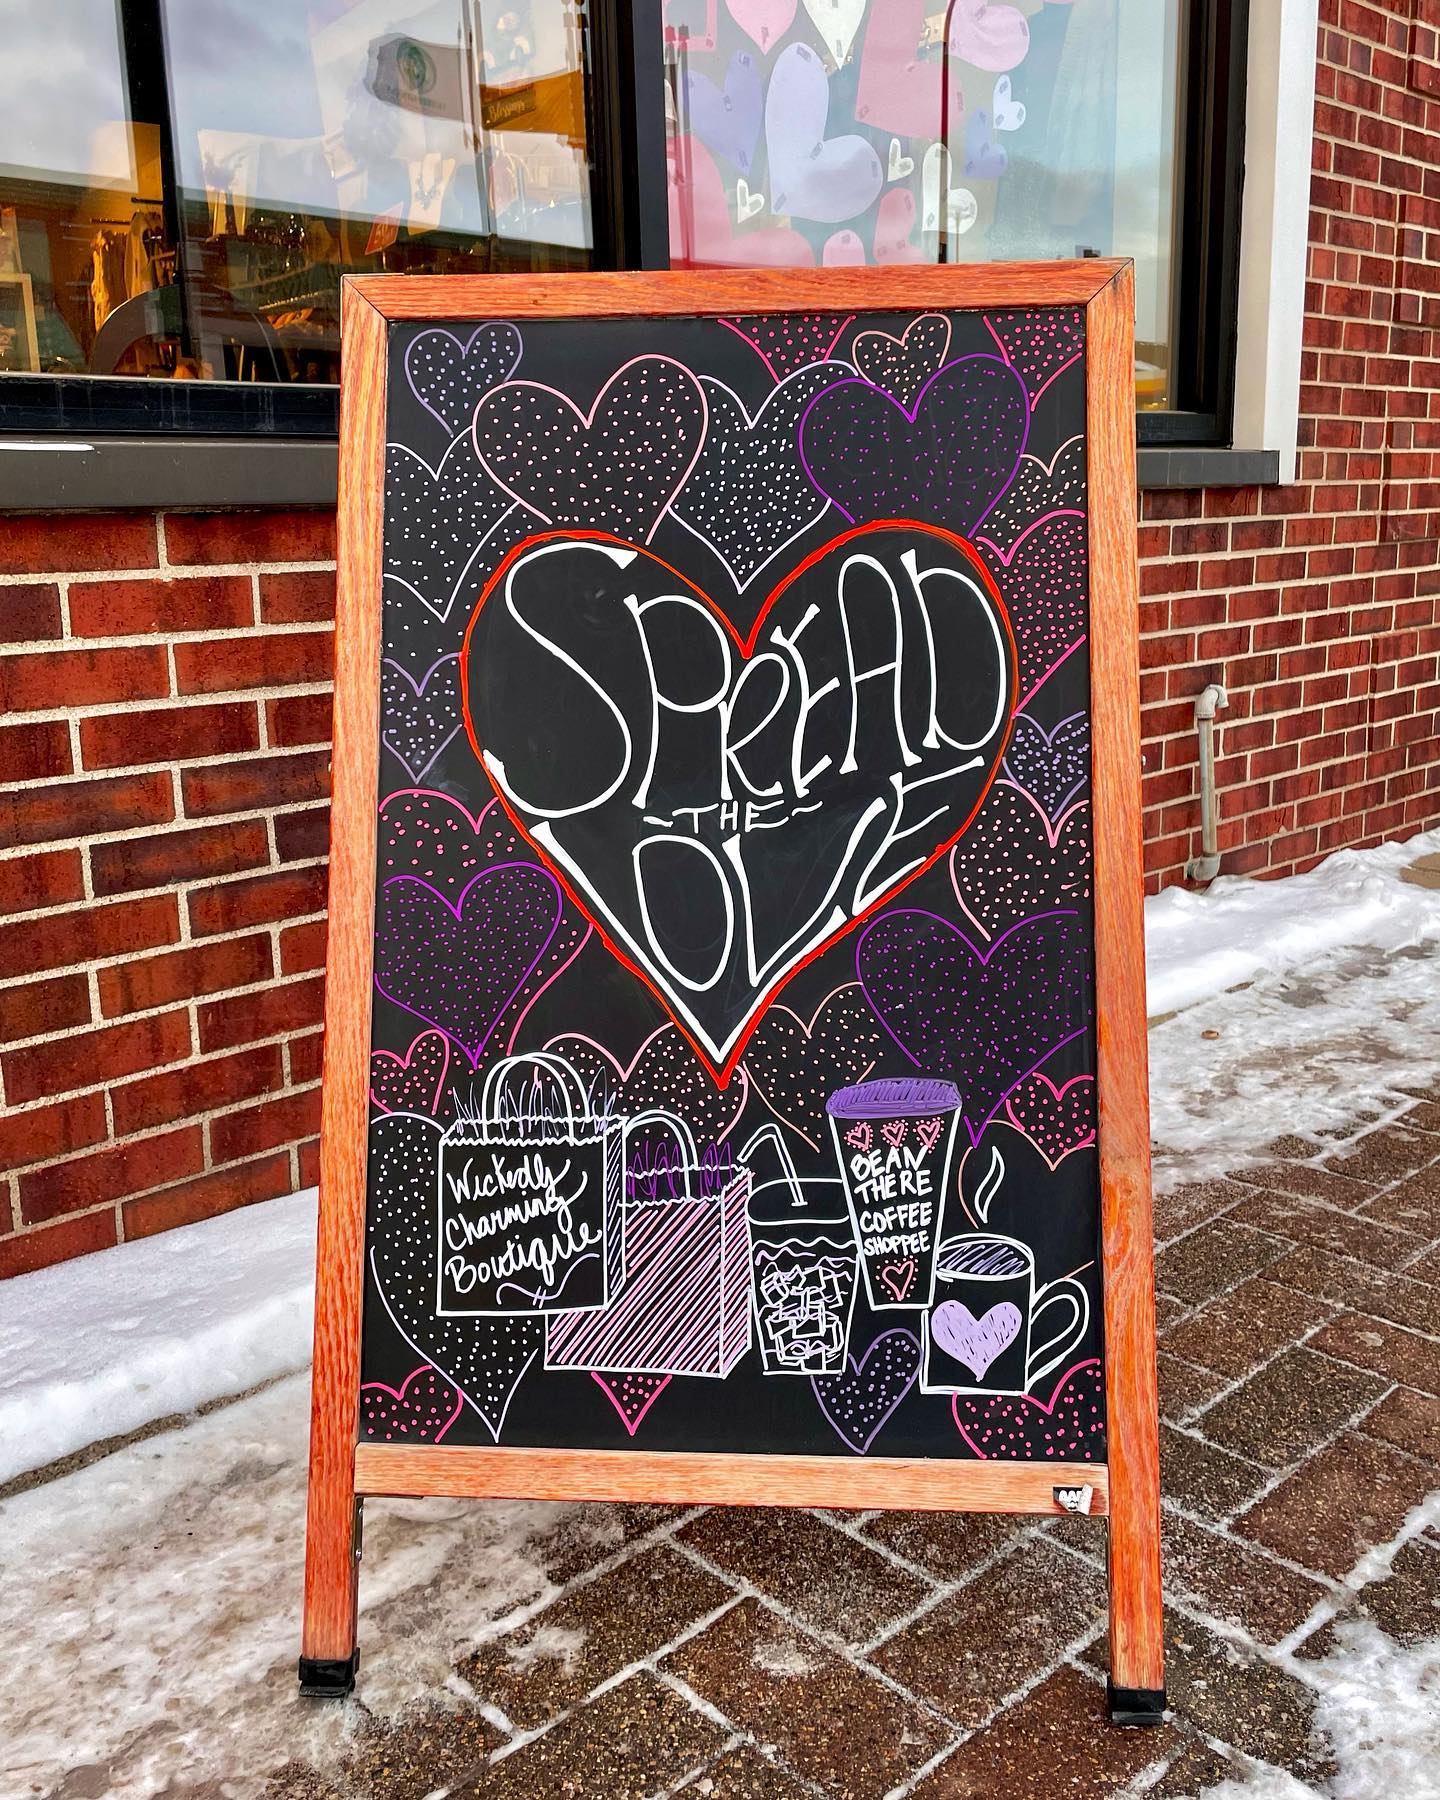 Blossom
SPREAD
~THE~
LOVE
Wickedly
Charming
Boutique
BEAN
THERE
COFFEE
SHOPPEE